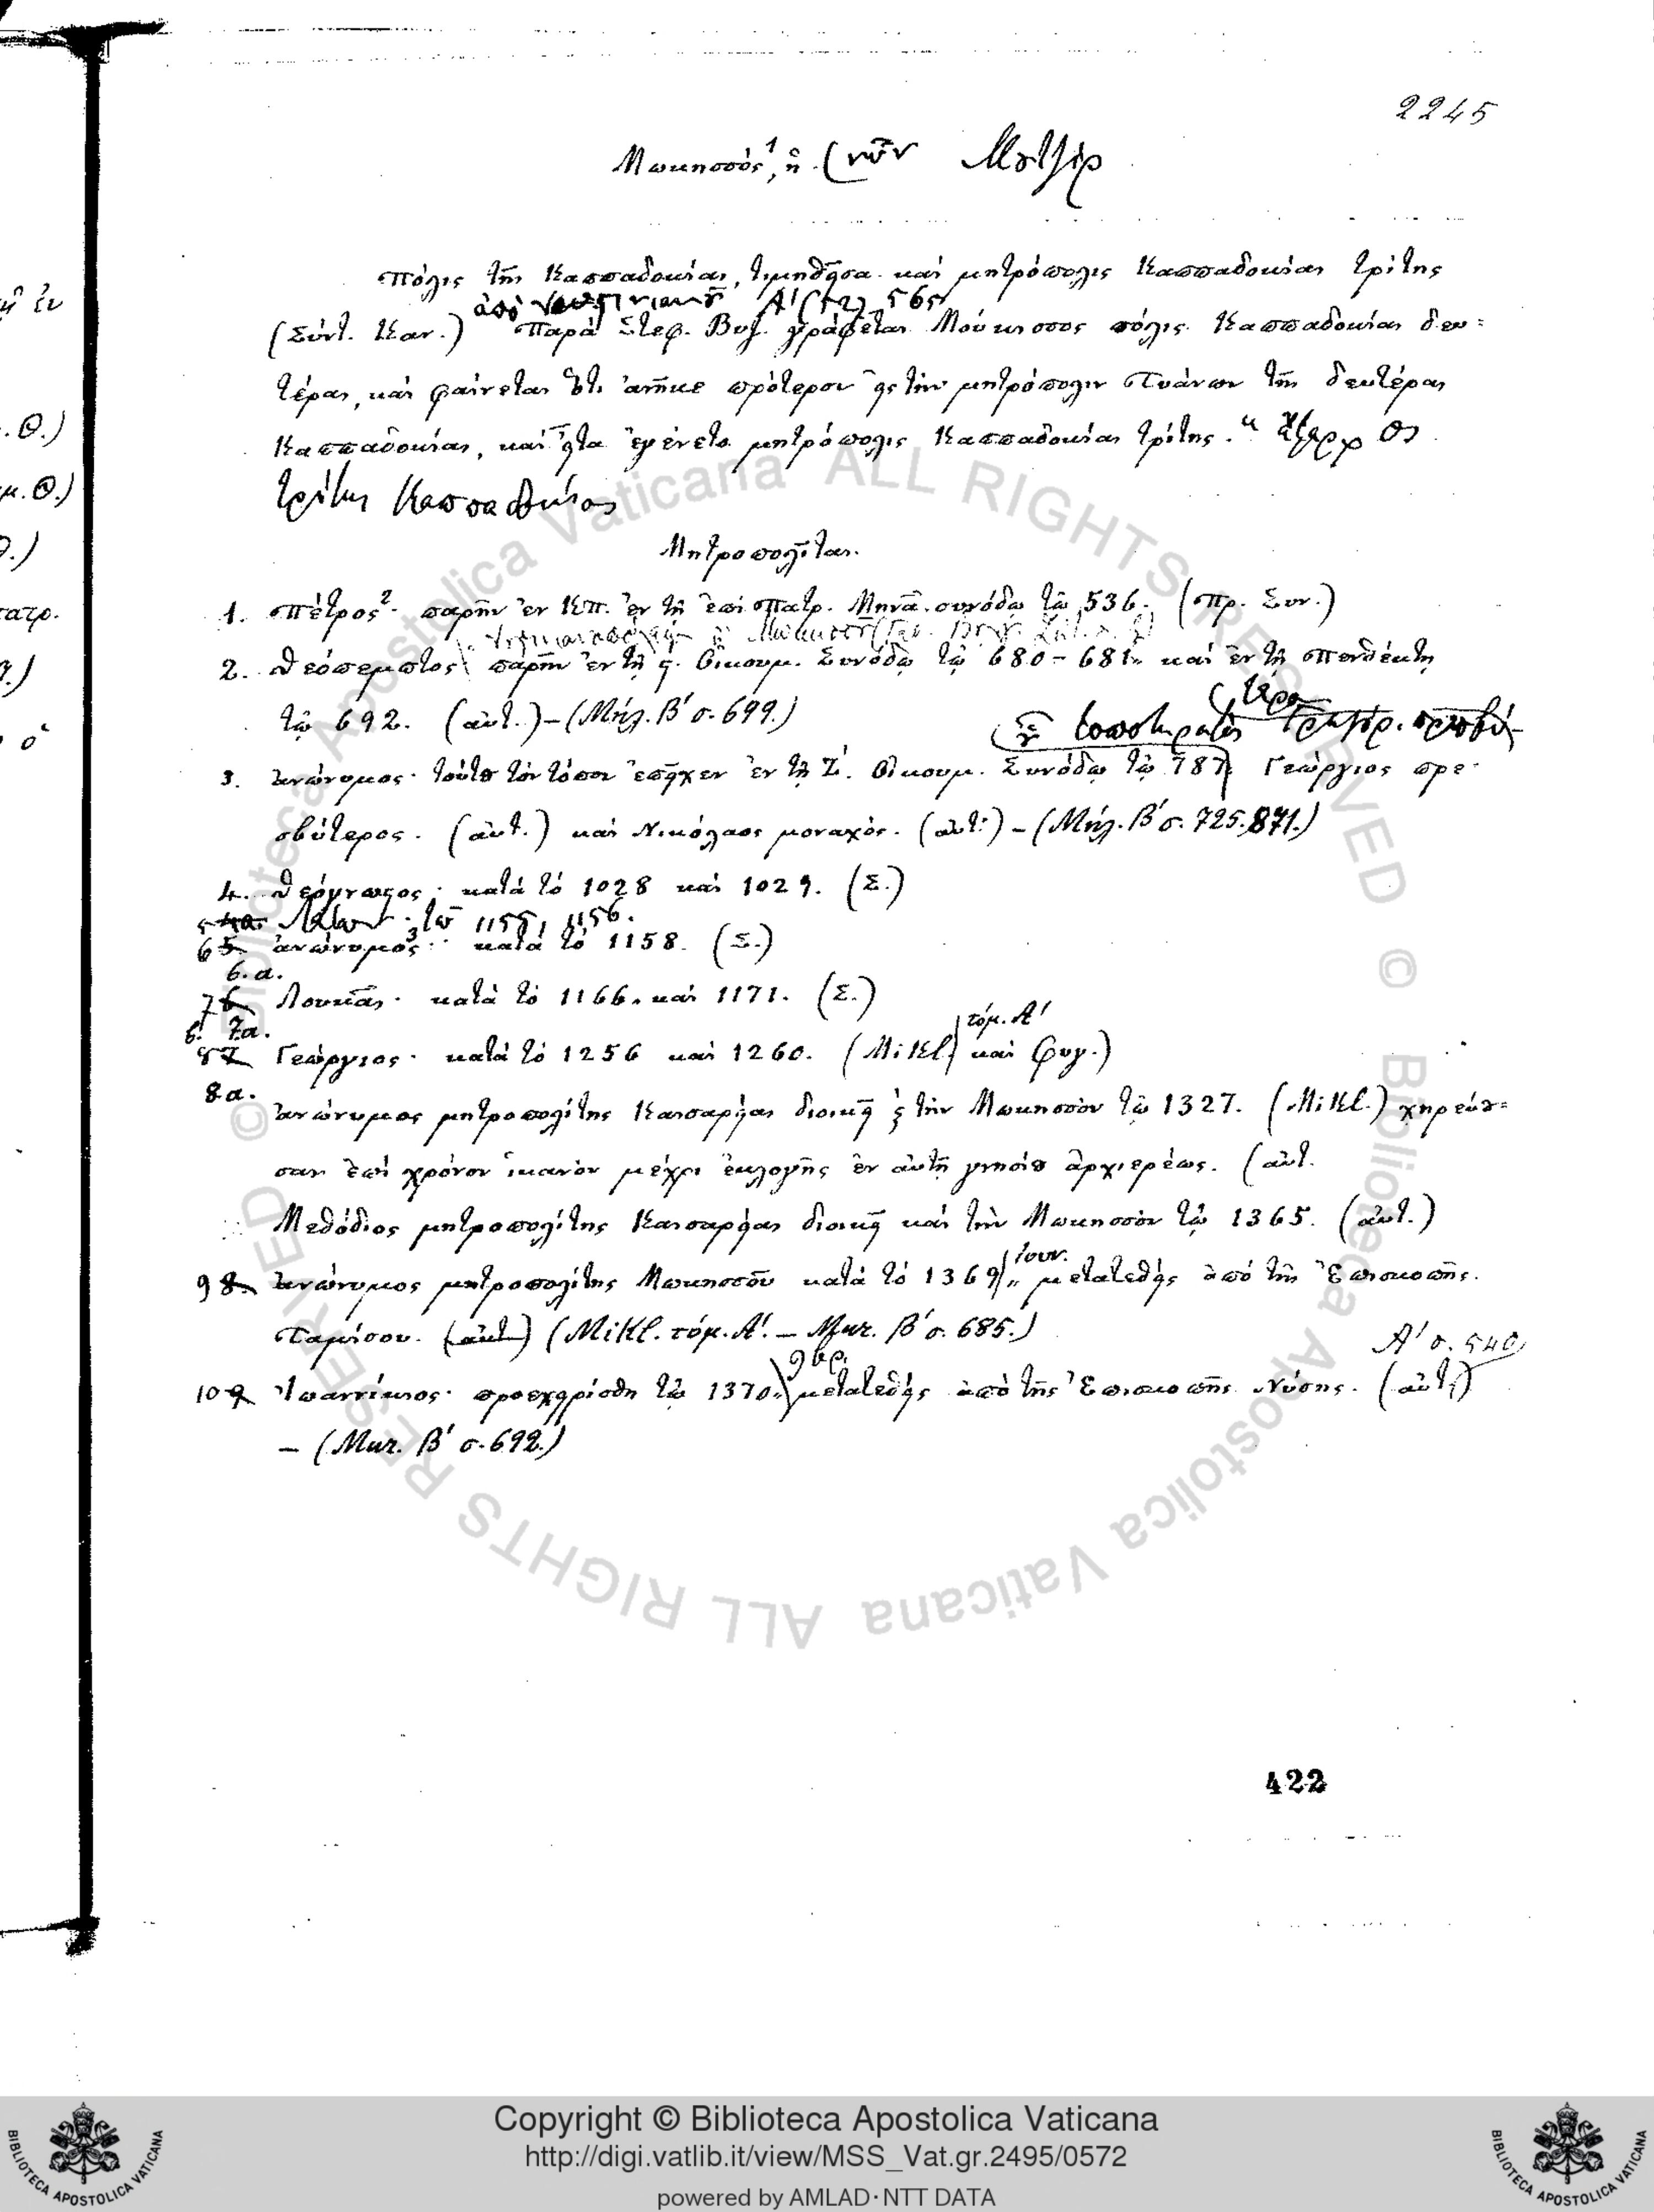 2245
Μωκησσός¹, ἡ (νῦν
Πόλις τῆς Καππαδοκίας, τιμηθεῖσα καὶ μητρόπολις Καππαδοκίας τρίτης
ἀπὸ Ἰουστινιανοῦ Α' 565
(Σύντ. Καν.) Παρὰ Στεφ. Βυζ. γράφεται Μούκισσος πόλις Καππαδοκίας δευ=
τέρας, καὶ φαίνεται ὅτι ἀνῆκε πρότερον εἰς τὴν μητρόπολιν Τυάνων τῆς δευτέρας
Καππαδοκίας, καὶ εἶτα ἐγένετο μητρόπολις Καππαδοκίας τρίτης.
τρίτης Καππαδοκίας
Μητροπολῖται.
1. Πέτρος² · παρῆν ἐν Κπ. ἐν τῇ ἐπὶ Πατρ. Μηνᾶ συνόδῳ τῷ 536. (Πρ. Συν.)
2. Θεόπεμπτος παρῆν ἐν τῇ ϛ. Οἰκουμ. Συνόδῳ τῷ 680-681 καὶ ἐν τῇ Πενθέκτῃ
τῷ 692. (αὐτ.) – (Μήλ. Β' σ. 699.)
τοποτηρητὴς
3. ἀνώνυμος· τούτου τὸν τόπον ἐπεῖχεν ἐν τῇ Ζ. Οἰκουμ. Συνόδῳ τῷ 787 Γεώργιος πρε-
σβύτερος. (αὐτ.) καὶ Νικόλαος μοναχός. (αὐτ.) – (Μήλ. Β' σ. 725, 871.)
4. Θεόγνωστος· κατὰ τὸ 1028 καὶ 1029. (Σ.)
5 4α. τῷ 1155, 1156.
6 5. ἀνώνυμος³· κατὰ τὸ 1158. (Σ.)
6.α.
7 6 Λουκᾶς· κατὰ τὸ 1166. καὶ 1171. (Σ.)
7α.
τόμ. Α'
8 7 Γεώργιος· κατὰ τὸ 1256 καὶ 1260. (Mikl. καὶ
8α.
ἀνώνυμος μητροπολίτης Καισαρείας διοικεῖ καὶ τὴν Μωκησσὸν τῷ 1327. (Mikl.) χηρεύσα=
σαν ἐπὶ χρόνον ἱκανὸν μέχρι ἐκλογῆς ἐν αὐτῇ γνησίου ἀρχιερέως. (αὐτ.
Μεθόδιος μητροπολίτης Καισαρείας διοικεῖ καὶ τὴν Μωκησσὸν τῷ 1365. (αὐτ.)
Ἰουν.
9 8. ἀνώνυμος μητροπολίτης Μωκησσοῦ κατὰ τὸ 1369 μετατεθεὶς ἀπὸ τῆς Ἐπισκοπῆς
Ταμίσου. (αὐτ.) (Mikl. τόμ. Α'. – Μηλ. Β' σ. 685.)
9βρ. Α' σ. 540
10 9 Ἰωαννίκιος· προεχειρίσθη τῷ 1370 μετατεθεὶς ἀπὸ τῆς Ἐπισκοπῆς Νύσης. (αὐτ.)
– (Μηλ. Β' σ. 692.)
422
Copyright © Biblioteca Apostolica Vaticana
http://digi.vatlib.it/view/MSS_Vat.gr.2495/0572
powered by AMLAD·NTT DATA
BIBLIOTECA APOSTOLICA VATICANA
BIBLIOTECA APOSTOLICA VATICANA
© Biblioteca Apostolica Vaticana ALL RIGHTS RESERVED © Biblioteca Apostolica Vaticana ALL RIGHTS RESERVED